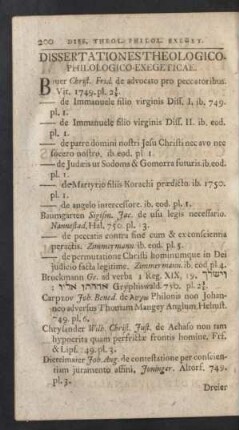 200 DISS. THEOL. PHILOL. EXEGET.
DISSERTATIONES THEOLOGICO-
PHILOLOGICO-EXEGETICAE.
Boyer Christ. Frid. de advocato pro peccatoribus.
Vit. 1749. pl. 2½.
— de Immanuele filio virginis Diss. I. ib. 749.
pl. 1.
— de Immanuele filio virginis Diss. II. ib. eod.
pl. 1.
— de patre domini nostri Jesu Christi nec avo nec
socero nostro, ib. eod. pl. 1.
— de Judæis ut Sodoma & Gomorra futuris. ib. eod.
pl. 1.
— de Martyrio filiis Korachi prædicto ib. 1750.
pl. 1.
— de angelo intercessore. ib. eod. pl. 1.
Baumgarten Sigism. Jac. de usu legis necessario.
Hal. 750. pl. 13.
— de peccatis contra fidei cum & ex conscientia
peractis. Zimmermann. ib. eod. pl. 5.
— de permutatione Christi hominumque in Dei
judicio facta legitime, Zimmermann. ib. eod pl. 4.
Brockmann Ge. ad verba 1 Reg. XIX, 19. וישלך
אדרתו אליו: Gryphiswald 750. pl. 2½.
Carpzov Joh. Bened. de λογω Philonis non Johan-
neo adversus Thomam Mangey Anglum. Helmst.
749. pl. 6.
Chrysander Wilh. Christ. Just. de Achaso non tam
hypocrita quam perfrictæ frontis homine, Frf.
& Lips. 749. pl. 3.
Dietelmaier Joh. Aug. de contestatione per conscien-
tiam juramento affini, Altorf. 749.
pl. 3.
Dreier